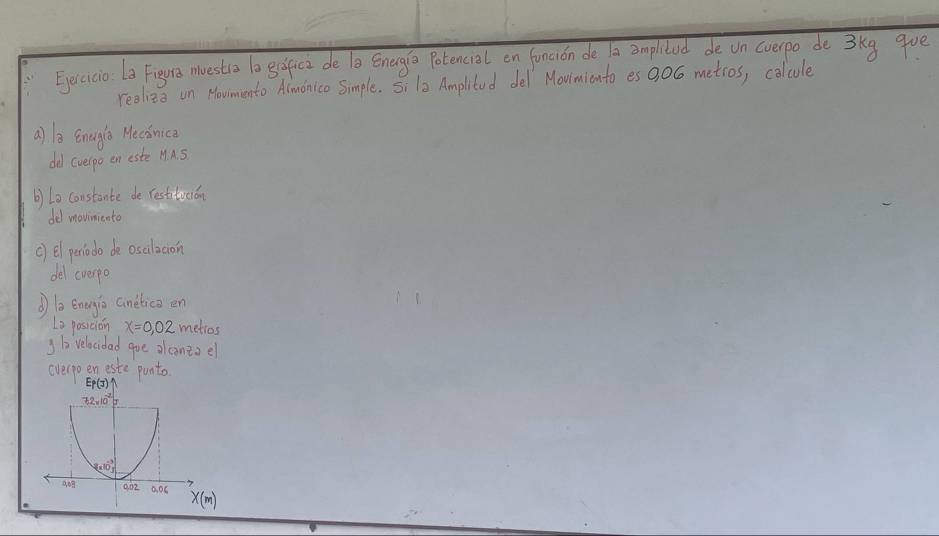 Ejercicio: La Figura muestra la gráfica de la Energía Potencial en función de la amplitud de un cuerpo de 3kg que
realiza un Movimiento Armónico Simple. Si la Amplitud del Movimiento es 0,06 metros, calcule
a) la Energía Mecánica
del cuerpo en este M.A.S.
b) La constante de restitución
del movimiento
c) El período de oscilación
del cuerpo
d) la Energía Cinética en
La posición x=0,02 metros
y la velocidad que alcanza el
cuerpo en este punto.
Ep(J)
7.2x10⁻² J
8x10⁻³ J
0,02 0,06
X(m)